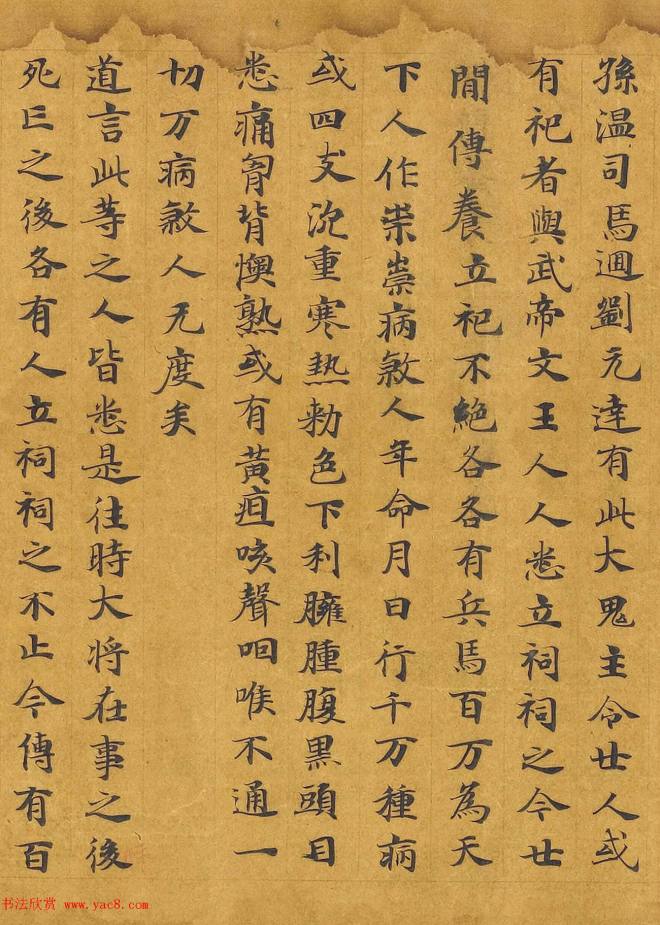 孫温司馬迊劉元達有此大鬼主令廿人或
有祀者與武帝文王人人悉立祠祠之今廿
閒傳養立祀不絶各各有兵馬百万為天
下人作祟祟病煞人年命月日行千万種病
或四支沉重寒熱勑色下利臃腫腹黒頭目
悉痛胷背懊熟或有黃疸咳聲咽喉不通一
切万病煞人无度矣
道言此等之人皆悉是往時大将在事之後
死亡之後各有人立祠祠之不止今傳有百
书法欣赏 www.yac8.com